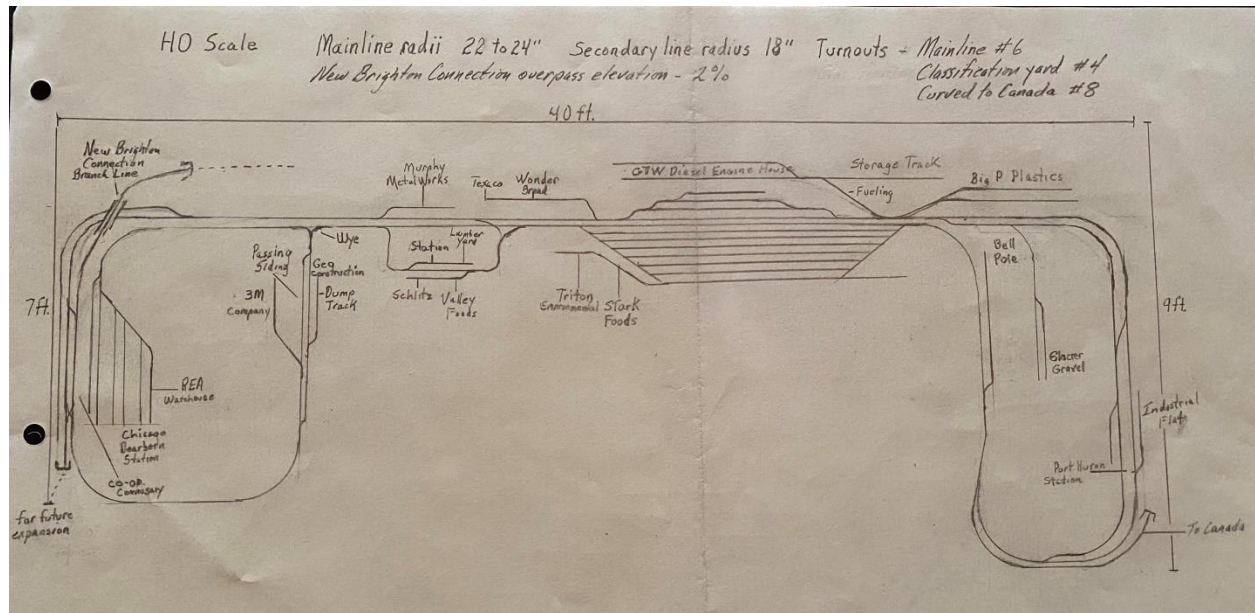 HO Scale Mainline radii 22 to 24" Secondary line radius 18" Turnouts - Mainline #6
New Brighton Connection overpass elevation - 2%
Classification yard #4
Curved to Canada #8
40 ft.
New Brighton
Connection
Branch Line
Murphy
Metal Works
Texaco
Wonder
Bread
GTW Diesel Engine House
Storage Track
-Fueling
Big P Plastics
Wye
Station
Lumber
Yard
Passing
Siding
Geo
Construction
-Dump
Track
3M
Company
Schlitz
Valley
Foods
Triton
Environmental
Stork
Foods
Bell
Pole
7ft.
9ft.
Glacier
Gravel
REA
Warehouse
Chicago
Dearborn
Station
CO-OP
Commissary
Industrial
Flats
Port Huron
Station
To Canada
for future
expansion